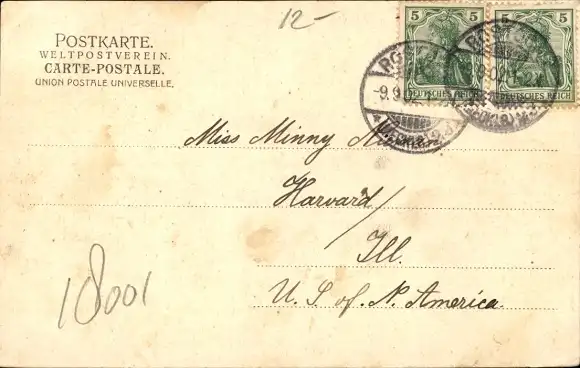 12-
POSTKARTE.
WELTPOSTVEREIN.
CARTE-POSTALE.
UNION POSTALE UNIVERSELLE.
5 5 5 5
DEUTSCHES REICH DEUTSCHES REICH
-9.9.
Miss Minny
Harvard/
Ill.
U. S. of. N. America
18001